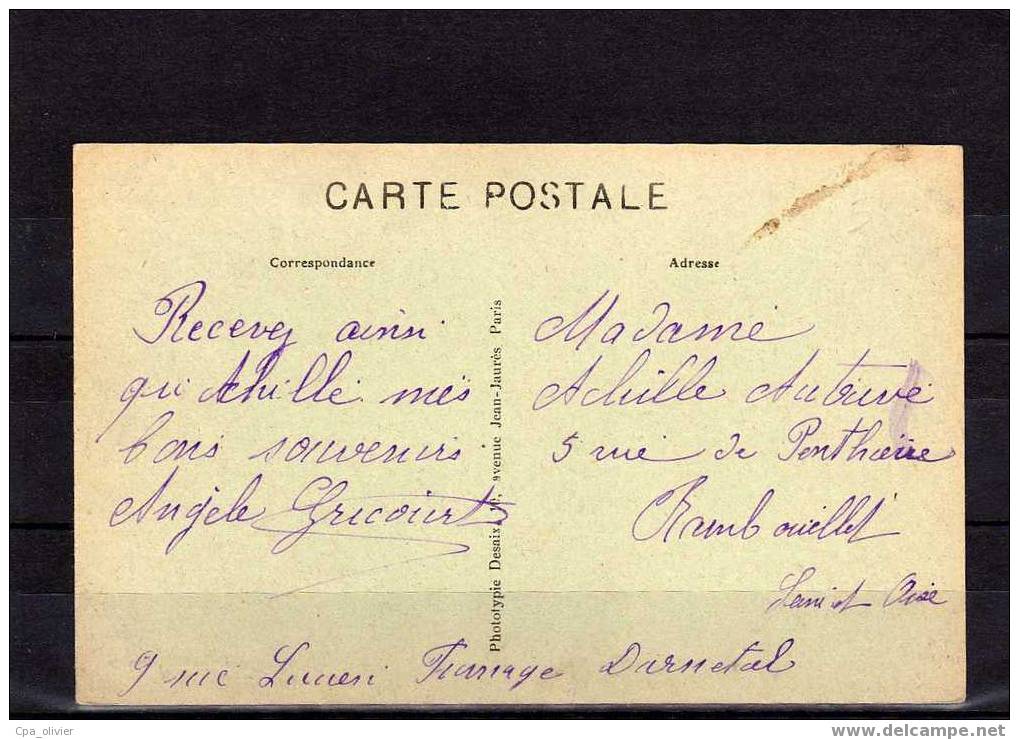 CARTE POSTALE
Correspondance
Adresse
Recevez ainsi
qu'Achille mes
bons souvenirs
Angèle Gricourt
Phototypie Desaix, avenue Jean-Jaurès Paris
Madame
Achille Autrive
5 rue de Penthièvre
Rambouillet
Seine et Oise
9 rue Lucien Fromage Darnetal
Cpa_olivier
www.delcampe.net